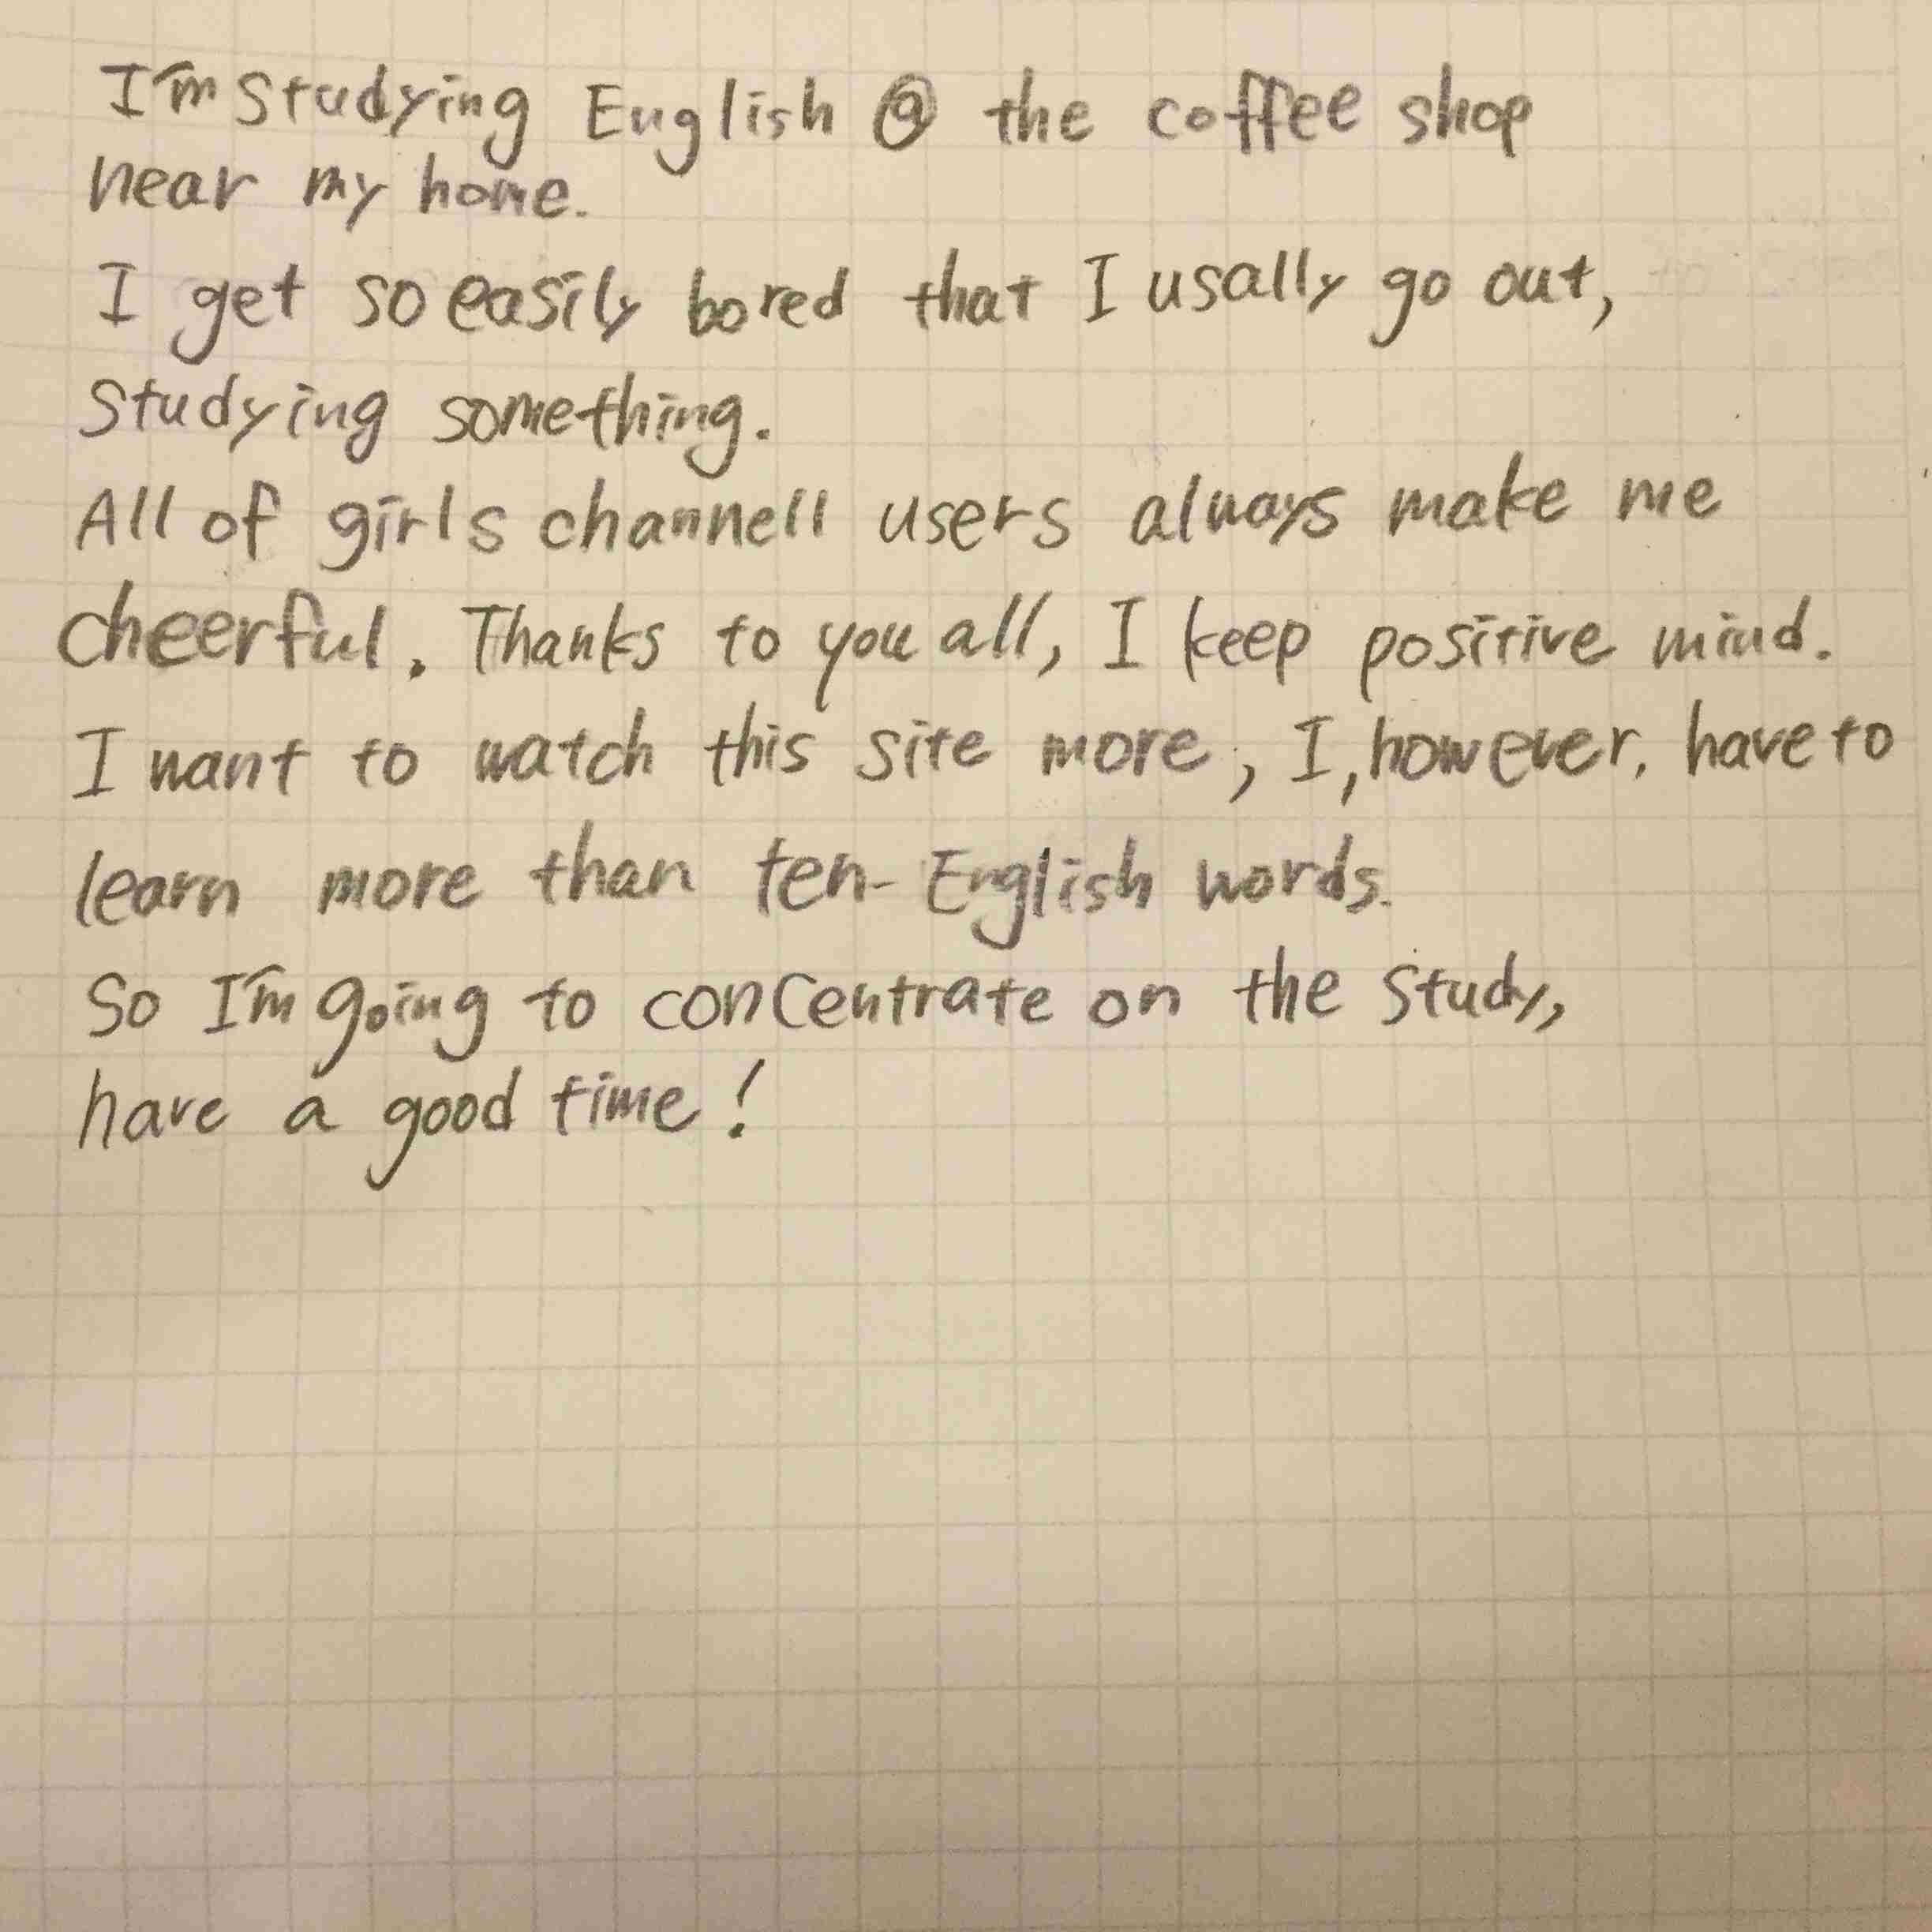 I'm studying English @ the coffee shop
near my home.
I get so easily bored that I usally go out,
studying something.
All of girls channell users always make me
cheerful. Thanks to you all, I keep positive mind.
I want to watch this site more, I, however, have to
learn more than ten- English words.
So I'm going to concentrate on the study,
have a good time!